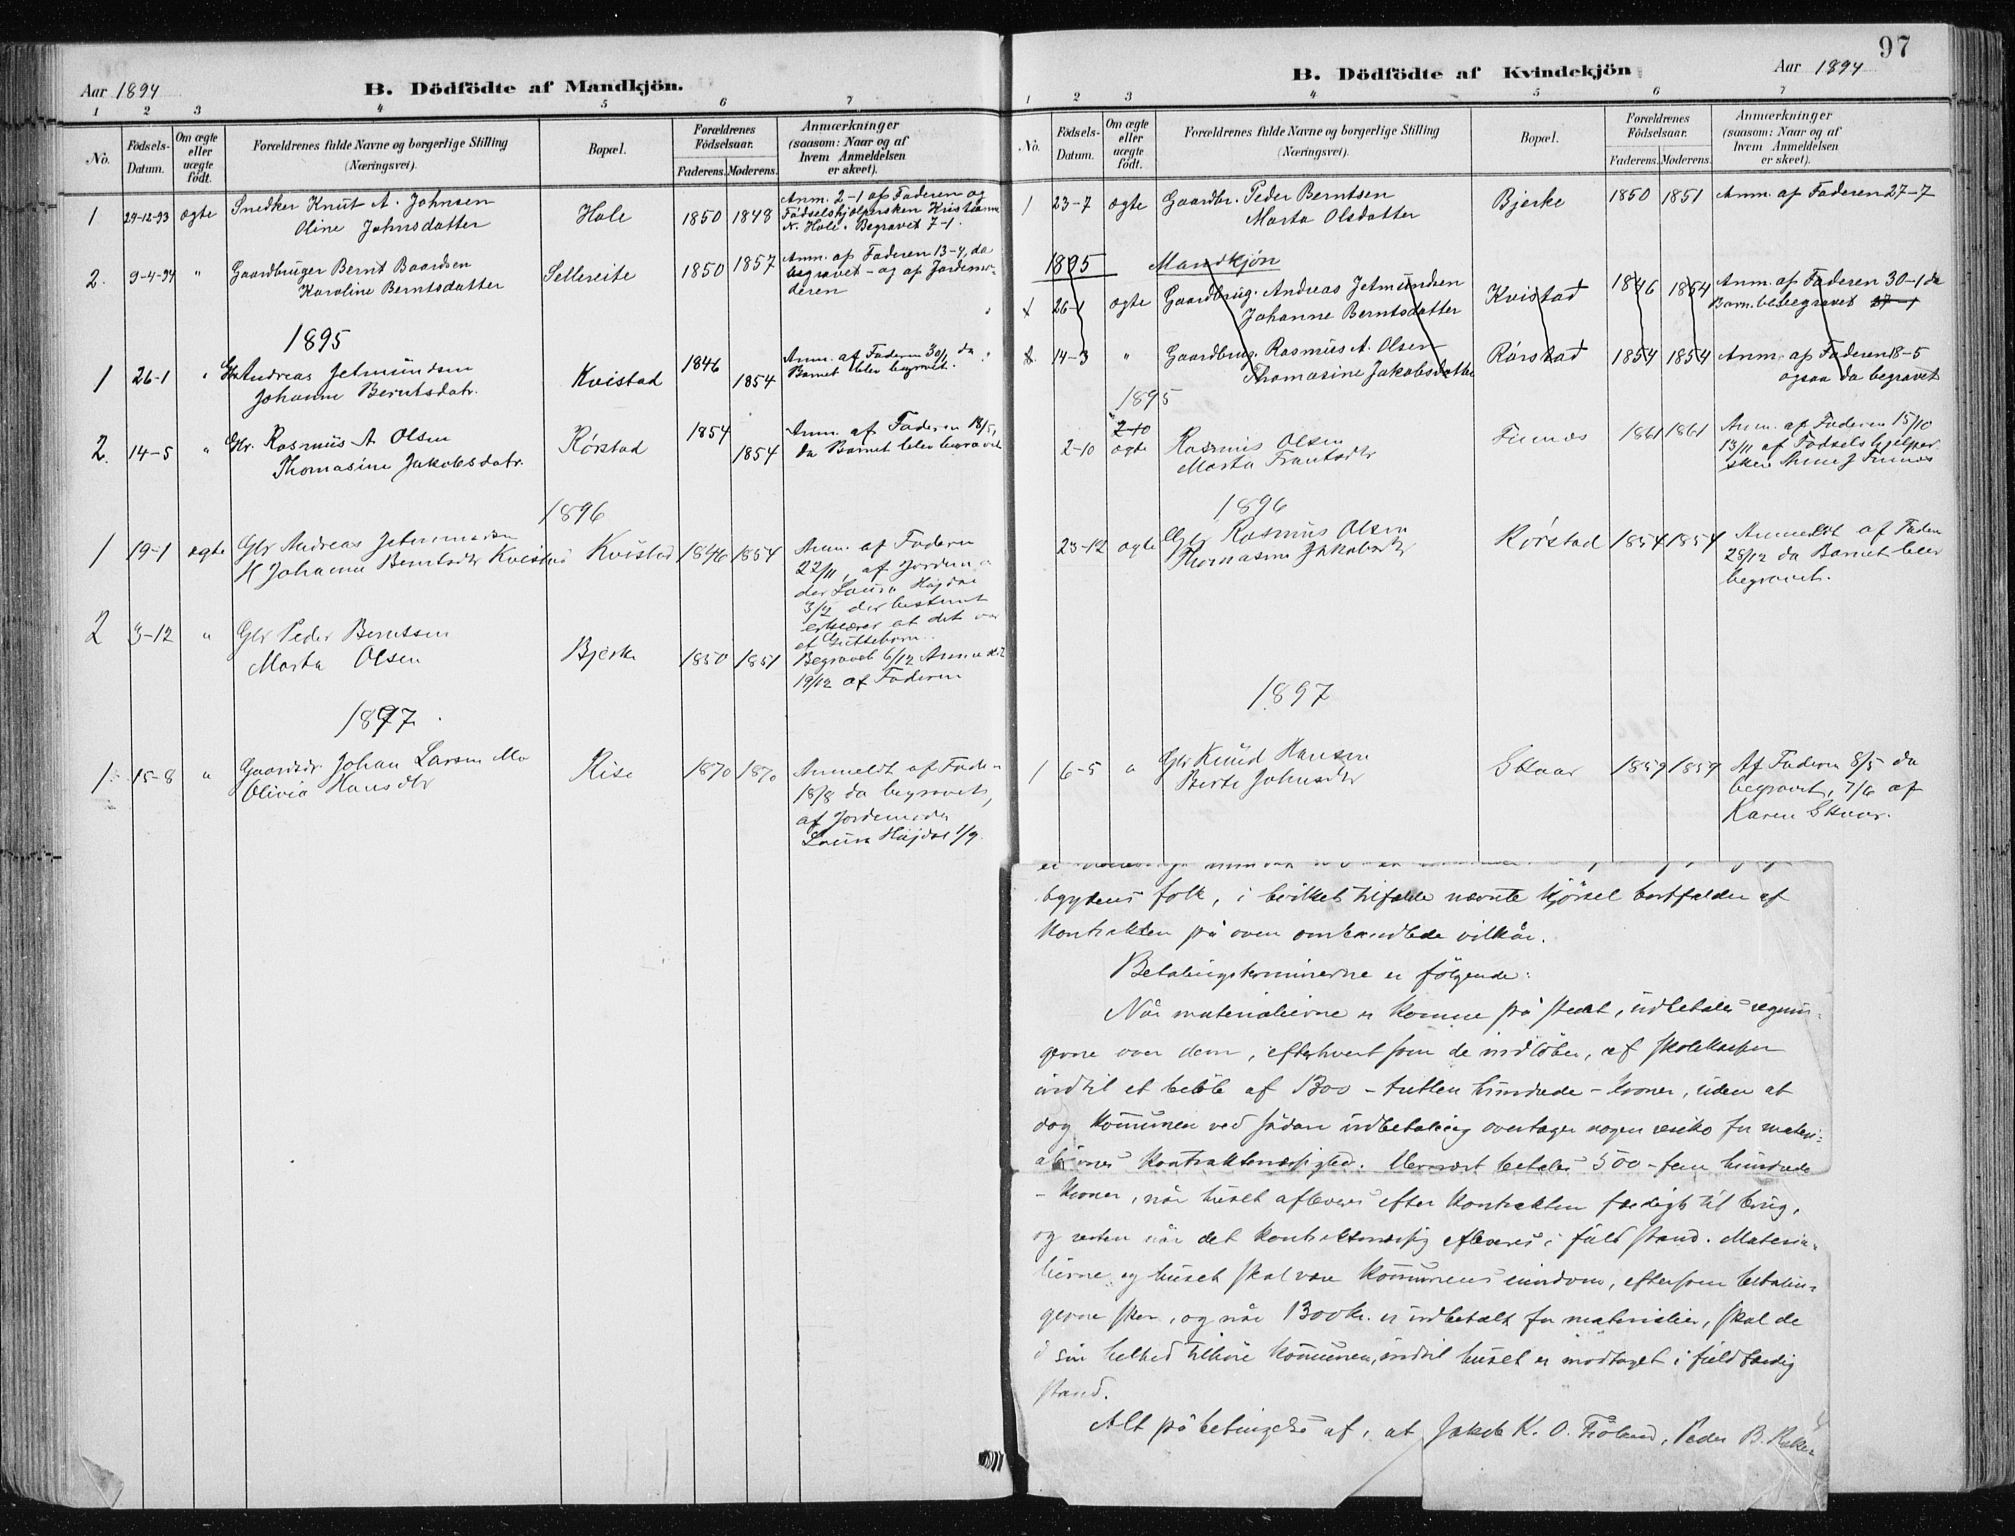 Aar 1894
B. Dödfödte af Mandkjön.
1 2 3 4 5 6 7
No.
Födsels-Datum.
Om ægte eller uægte födt.
Forældrenes fulde Navne og borgerlige Stilling (Næringsvei).
Bopæl.
Forældrenes Födselsaar.
Faderens. Moderens.
Anmærkninger (saasom: Naar og af hvem Anmeldelsen er skeet).
1 29-12-93 ægte Snedker Knut A. Johnsen Hole 1850 1848 Anm. 2-1 af Faderen og
Oline Johnsdatter Fødselshjælpersken Kristianne
N. Hole. Begravet 7-1.
2. 9-4-94 " Gaardbruger Bernt Baardsen Sellereite 1850 1857 Anm. af Faderen 13-4, da
Karoline Berntsdatter begravet - og af Jordemo-
deren
1895
1 26-1 " Gbr Andreas Jetmundsen Kvistad 1846 1854 Anm. af Faderen 30/1 da
Johanne Berntsdatr. Barnet blev begravet.
2. 14-5 " Gbr. Rasmus A. Olsen Rørstad 1854 1854 Anm. af Faderen 18/5,
Thomasine Jakobsdatr. da Barnet blev begravet
1896
1 19-1 ægte Gbr Andreas Jetmundsen Kvistad 1846 1854 Anm. af Faderen
Johanne Berntsdtr Kvistad 22/11, af Jordmo-
der Laura Højdal
3/2 der bestemt
erklærer at det var
et Guttebarn.
2 3-12 " Gbr Peder Berntsen Bjerke 1850 1851 Begravet 6/12 Anmeldt
Marta Olsen 19/12 af Faderen
1897
1 15-8 " Gaardbr. Johan Larsen Mo Rise 1870 1870 Anmeldt af Faderen
Olivia Hansdtr 18/8 da begravet,
af Jordemoder
Laura Højdal 1/9.
97
Aar 1894
B. Dödfödte af Kvindekjön
1 2 3 4 5 6 7
No.
Födsels-Datum.
Om ægte eller uægte födt.
Forældrenes fulde Navne og borgerlige Stilling (Næringsvei).
Bopæl.
Forældrenes Födselsaar.
Faderens. Moderens.
Anmærkninger (saasom: Naar og af hvem Anmeldelsen er skeet).
1 23-7 ægte Gaardbr. Peder Berntsen Bjerke 1850 1851 Anm. af Faderen 27-7
Marta Olsdatter
1895 Mandkjön
1 26-1 ægte Gaardbrug. Andreas Jetmundsen Kvistad 1846 1854 Anm. af Faderen 30-1 da
Johanne Berntsdatter Barn. blev begravet
2. 14-3 " Gaardbrug. Rasmus A. Olsen Rørstad 1854 1854 Anm. af Faderen 18-5
Thomasine Jakobsdatter ogsaa da begravet
1895
2-10
2-10 ægte Rasmus Olsen Finnes 1861 1861 Anm. af Faderen 15/10
Marta Frantsdtr 13/11 af Fødselshjelper
sken Anne J Finnes
1896
23-12 ægte Gbr Rasmus Olsen Rørstad 1854 1854 Anmeldt af Faderen
Thomasine Jakobsdtr 28/12 da Barnet blev
begravet.
1897
1 6-5 " Gbr Knud Hansen Skaar 1859 1859 Af Faderen 8/5 da
Berte Johnsdtr begravet, 7/6 af
Karen Skaar.
bygdens folk, i hvilket tilfælde nævnte kjørsel bortfalder af
kontrakten på oven ombandlede vilkår.
Betalingsterminerne er følgende:
Når materialierne er komne på stedet, udbetales regnin-
gerne over dem, efterhvert som de indløber, af skolekassen
indtil et beløb af 1300 - tretten hundrede - kroner, uden at
dog kommunen ved sådan udbetaling overtager nogen risiko for materi-
aliernes kontraktmæssighed. Dernæst betales 500 - fem hundrede
- kroner, når huset afleveres efter kontrakten færdigt til brug,
og resten når det kontraktmæssig afleveres i fuld stand. Materia-
lierne og huset skal være kommunens eiendom, eftersom betalin-
gerne sker, og når 1300 kr. er udbetalt for materialier, skal de
i sin helhed tilhøre kommunen, indtil huset er modtaget i fuld færdig
stand.
Alt på betingelse af, at Jakob K. O. Fröland, Peder B.